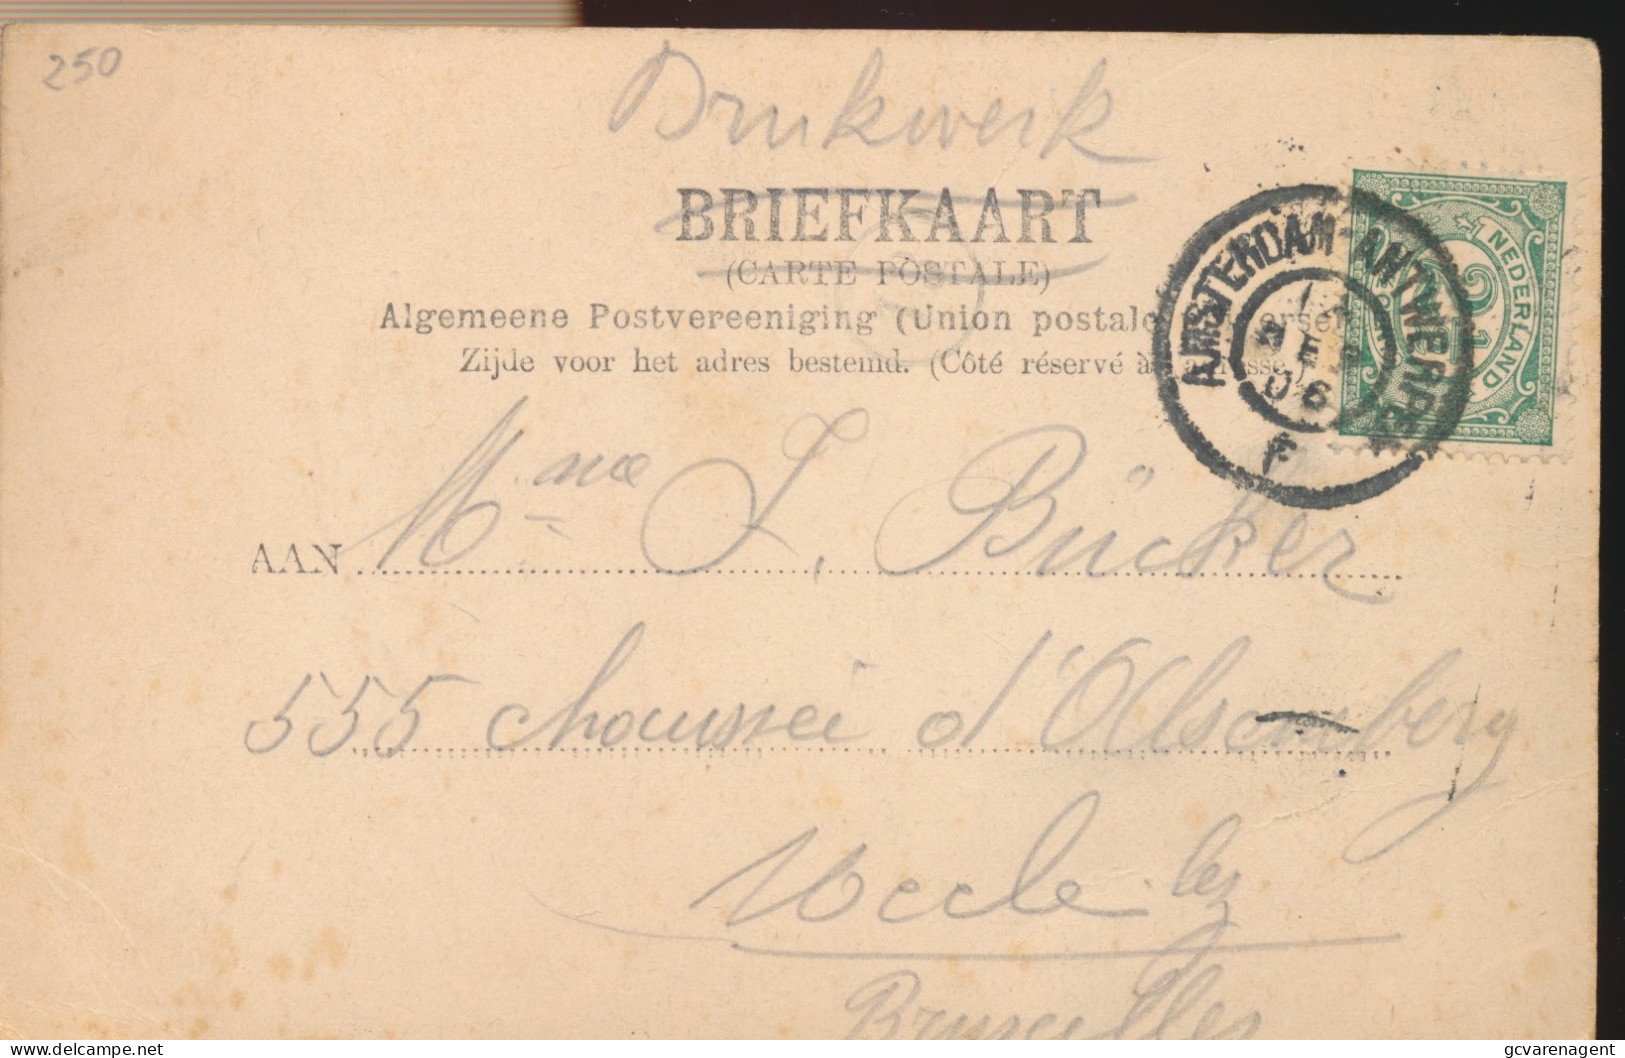 250
Drukwerk
BRIEFKAART
(CARTE POSTALE)
Algemeene Postvereeniging (Union postale
Zijde voor het adres bestemd. (Côté réservé à
AMSTERDAM-ANTWERPEN
06
F
NEDERLAND
AAN Mme J. Bücker
555 chaussei d'Alsemberg
Uccle lez
Bruxelles
gcvarenagent